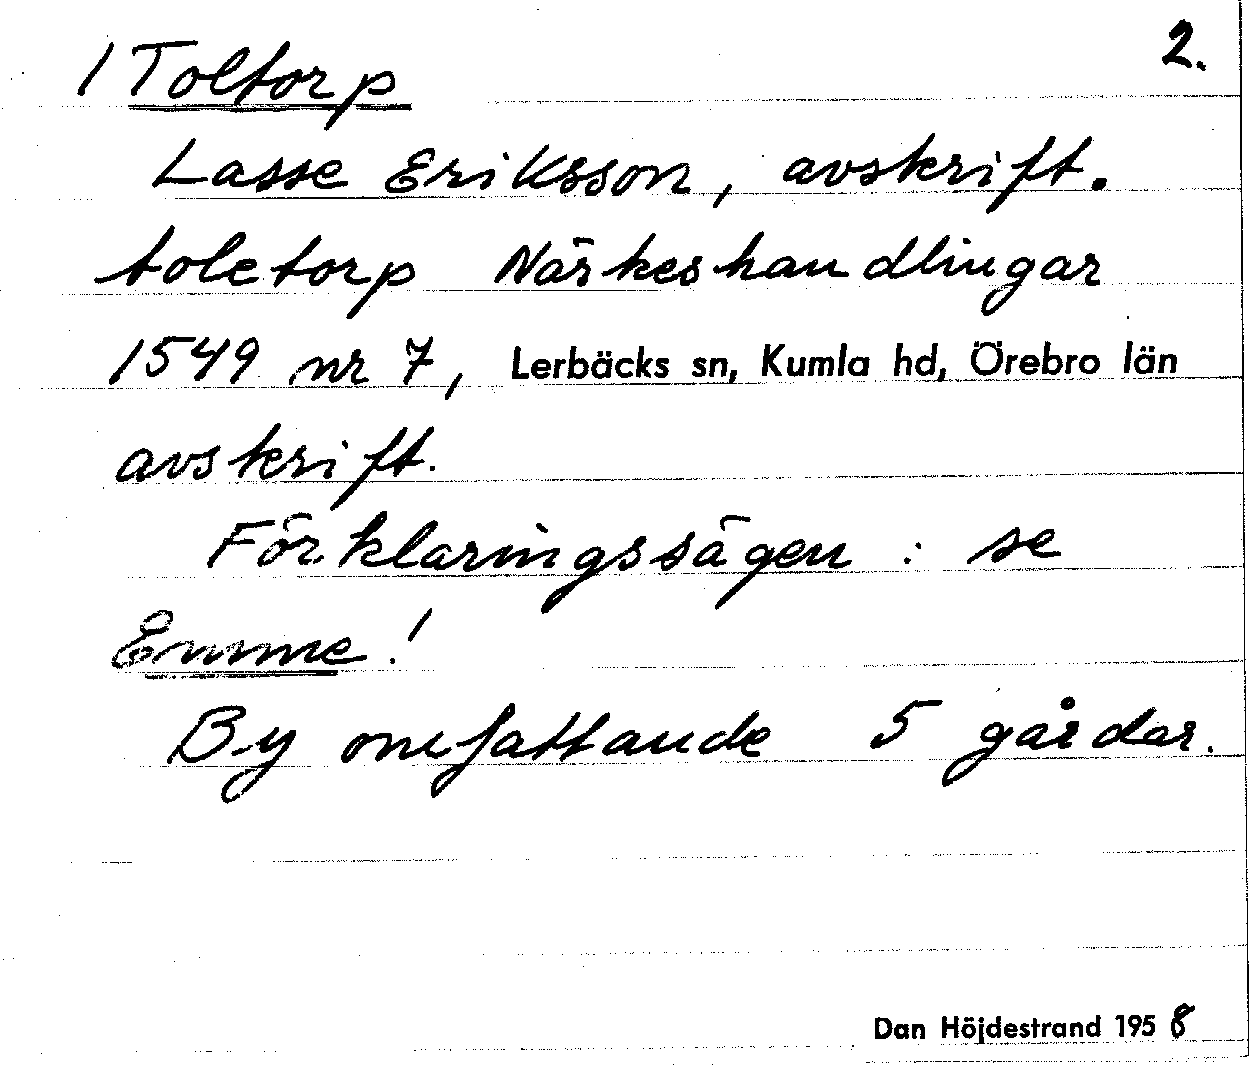 2.
/ Toltorp
Lasse Eriksson, avskrift.
toletorp Närkeshandlingar
1549 nr 7, Lerbäcks sn, Kumla hd, Örebro län
avskrift.
Förklaringssägen : se
Emme!
By omfattande 5 gårdar.
Dan Höjdestrand 1958